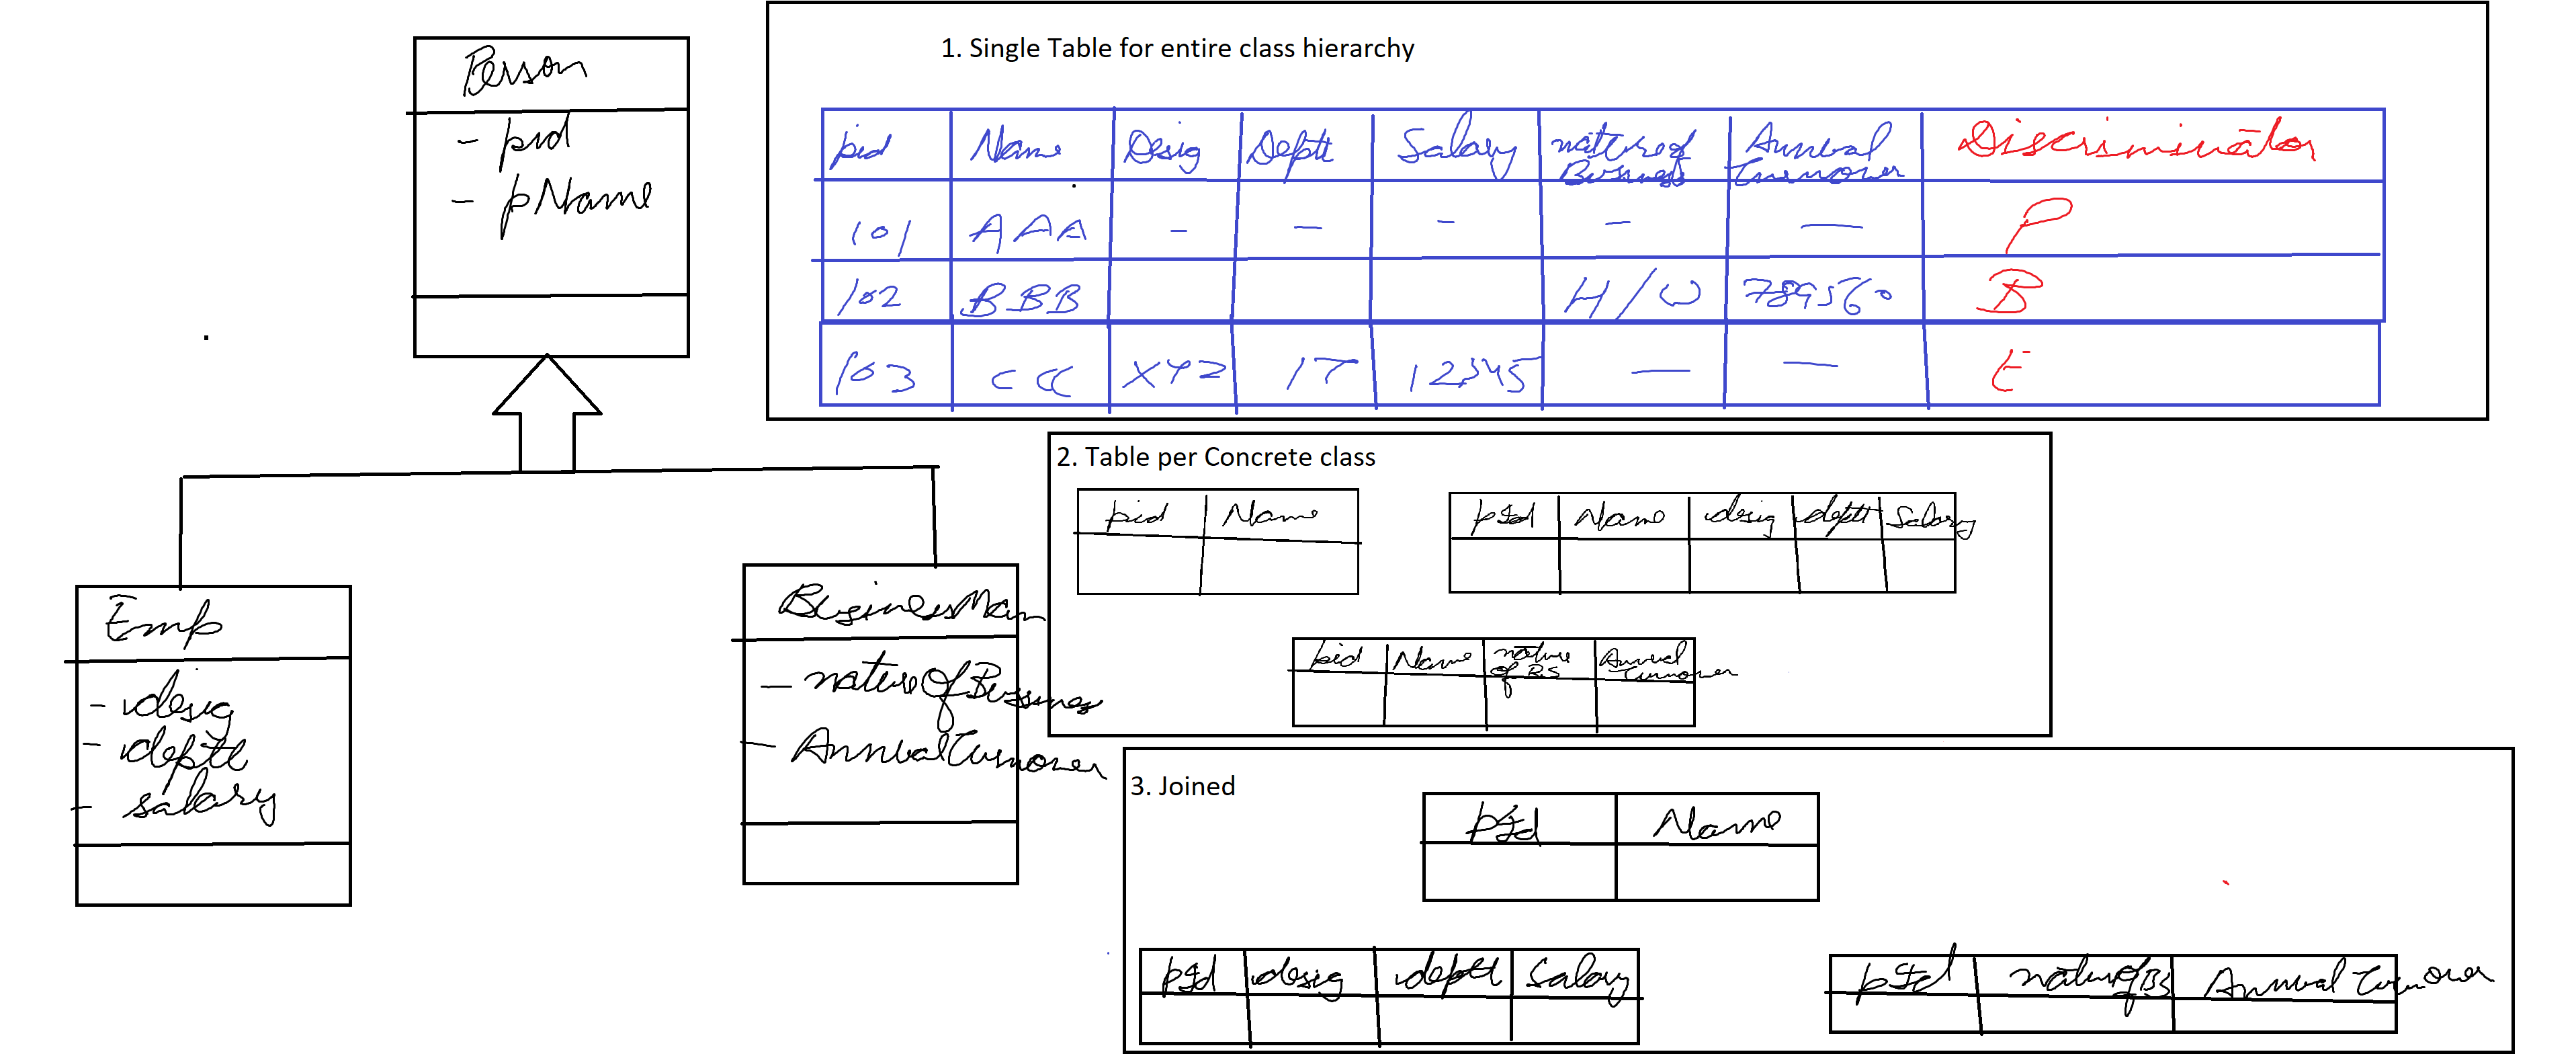 Person
- pid
- pName
Emp
- desig
- deptt
- salary
BusinessMan
- natureOfBussines
- AnnualTurnover
1. Single Table for entire class hierarchy
pid Name Desig Deptt Salary nature of Business Annual Turnover Discriminator
101 AAA - - - - — P
102 BBB H/W 789560 B
103 CCC XYZ IT 12345 — — E
2. Table per Concrete class
pid Name
pId Name desig deptt Salary
pid Name nature of BS Annual Turnover
3. Joined
pId Name
pId desig deptt Salary
pId nature of BS Annual Turnover